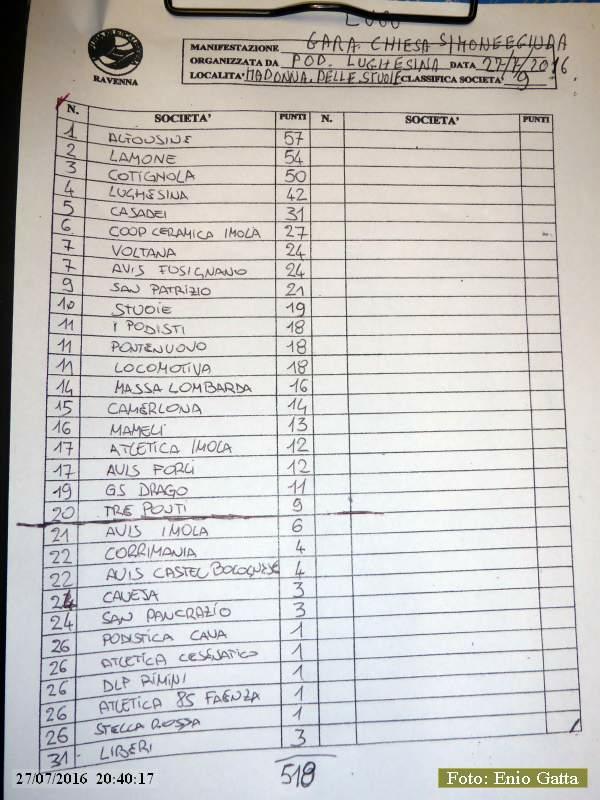 RAVENNA
MANIFESTAZIONE GARA CHIESA SIMONE E GIUDA
ORGANIZZATA DA POD. LUGHESINA DATA 27/7/2016
LOCALITA' MADONNA DELLE STUOIE CLASSIFICA SOCIETA' 9
N. SOCIETA' PUNTI N. SOCIETA' PUNTI
1 ALFONSINE 57
2 LAMONE 54
3 COTIGNOLA 50
4 LUGHESINA 42
5 CASADEI 31
6 COOP CERAMICA IMOLA 27
7 VOLTANA 24
7 AVIS FUSIGNANO 24
9 SAN PATRIZIO 21
10 STUOIE 19
11 I PODISTI 18
11 PONTENUOVO 18
11 LOCOMOTIVA 18
14 MASSA LOMBARDA 16
15 CAMERLONA 14
16 MAMELI 13
17 ATLETICA IMOLA 12
17 AVIS FORLI 12
19 GS DRAGO 11
20 TRE PONTI 9
21 AVIS IMOLA 6
22 CORRIMANIA 4
22 AVIS CASTEL BOLOGNESE 4
24 CAVEJA 3
24 SAN PANCRAZIO 3
26 PODISTICA CAVA 1
26 ATLETICA CESENATICO 1
26 DLP RIMINI 1
26 ATLETICA 85 FAENZA 1
26 STELLA ROSSA 1
31 LIBERI 3
518
27/07/2016 20:40:17
Foto: Enio Gatta